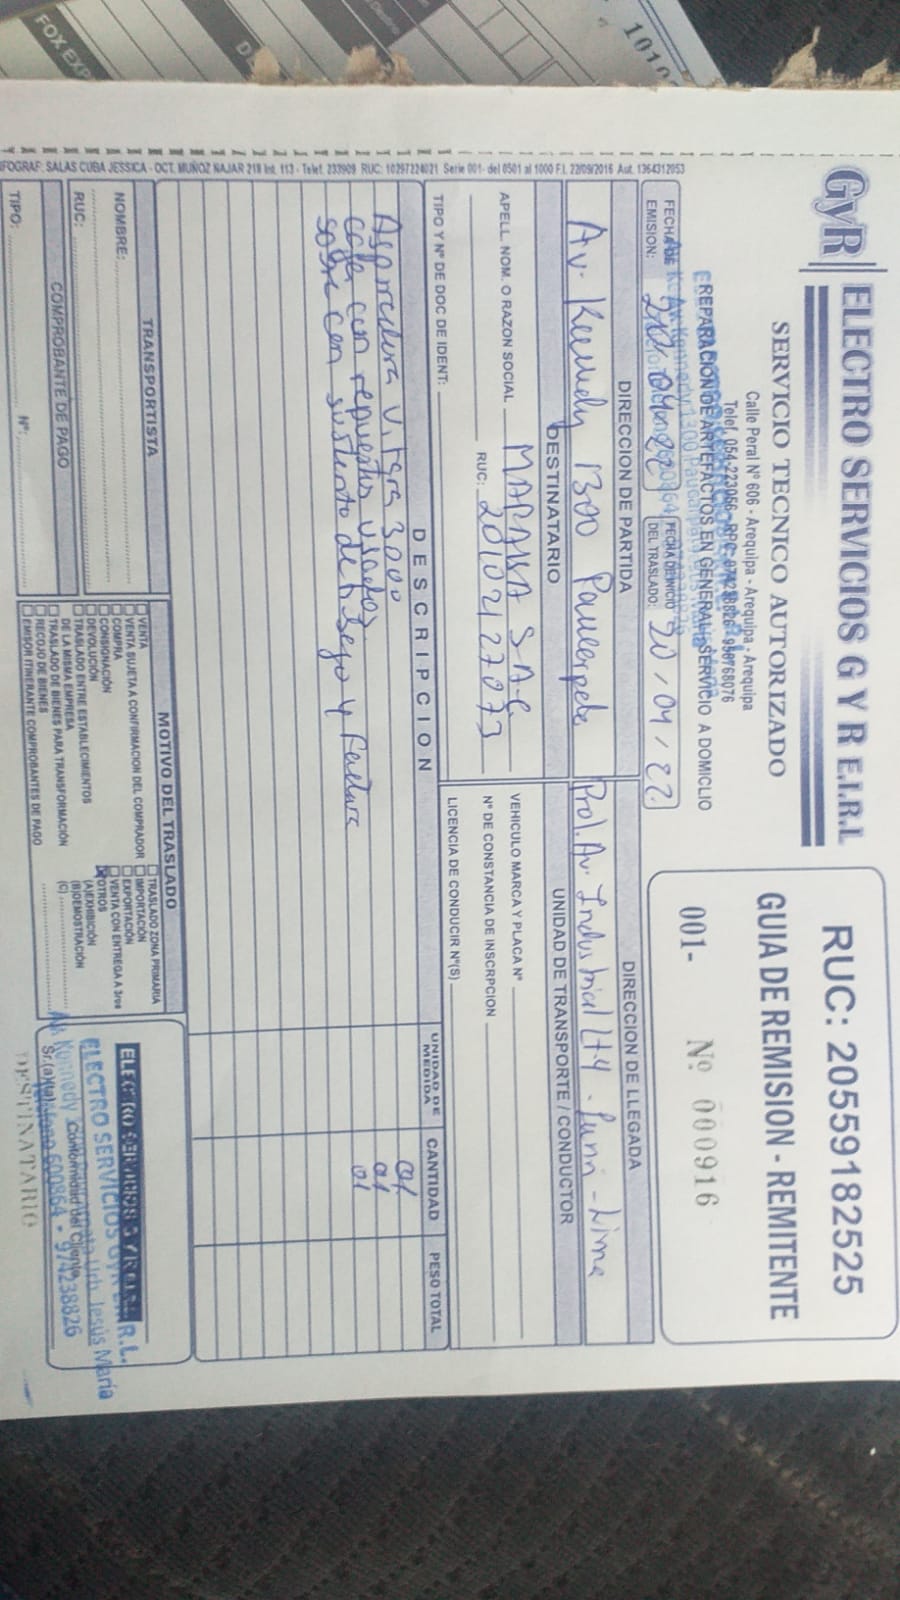 GyR
ELECTRO SERVICIOS G Y R E.I.R.L
SERVICIO TECNICO AUTORIZADO
Calle Peral N° 606 - Arequipa - Arequipa - Arequipa
Telef. 054-223056 - RPC: 974238826 - 958768076
REPARACION DE ARTEFACTOS EN GENERAL - SERVICIO A DOMICLIO
RUC: 20559182525
GUIA DE REMISION - REMITENTE
001- Nº 000916
FECHA DE EMISION: 04 22
FECHA DE INICIO DEL TRASLADO: 20 / 04 / 22
DIRECCION DE PARTIDA
DIRECCION DE LLEGADA
Av. Kennedy 1300 Paucarpata
Prol. Av. Industrial Lt 4 - Lurin - Lima
DESTINATARIO
UNIDAD DE TRANSPORTE / CONDUCTOR
APELL. NOM. O RAZON SOCIAL MAPALSA S.A.C.
VEHICULO MARCA Y PLACA N°
RUC: 20102127073
N° DE CONSTANCIA DE INSCRPCION
TIPO Y N° DE DOC DE IDENT:
LICENCIA DE CONDUCIR N°(S)
DESCRIPCION
UNIDAD DE MEDIDA
CANTIDAD
PESO TOTAL
Aspiradora Vitara 3000 01
caja con repuestos usados 01
sobre con sustento de y factura 01
TRANSPORTISTA
NOMBRE:
RUC:
COMPROBANTE DE PAGO
TIPO: N°:
MOTIVO DEL TRASLADO
VENTA
VENTA SUJETA A CONFIRMACION DEL COMPRADOR
COMPRA
CONSIGNACIÓN
DEVOLUCIÓN
TRASLADO ENTRE ESTABLECIMIENTOS
DE LA MISMA EMPRESA
TRASLADO DE BIENES PARA TRANSFORMACIÓN
RECOJO DE BIENES
EMISOR ITINERANTE COMPROBANTES DE PAGO
TRASLADO ZONA PRIMARIA
IMPORTACIÓN
EXPORTACIÓN
VENTA CON ENTREGA A 3ros
OTROS
(A)EXHIBICIÓN
(B)DEMOSTRACIÓN
(C)
ELECTRO SERVICIOS GYR E.I.R.L.
Av. Kennedy Urb. Jesús María
600864 - 974238826
Conformidad del Cliente
Sr.(a)(ta)
DESTINATARIO
INFOGRAF: SALAS CUBA JESSICA - OCT. MUÑOZ NAJAR 218 Int. 113 - Telef. 233909 RUC: 10297224021 Serie 001- del 0501 al 1000 F.I. 22/09/2016 Aut. 1364312053